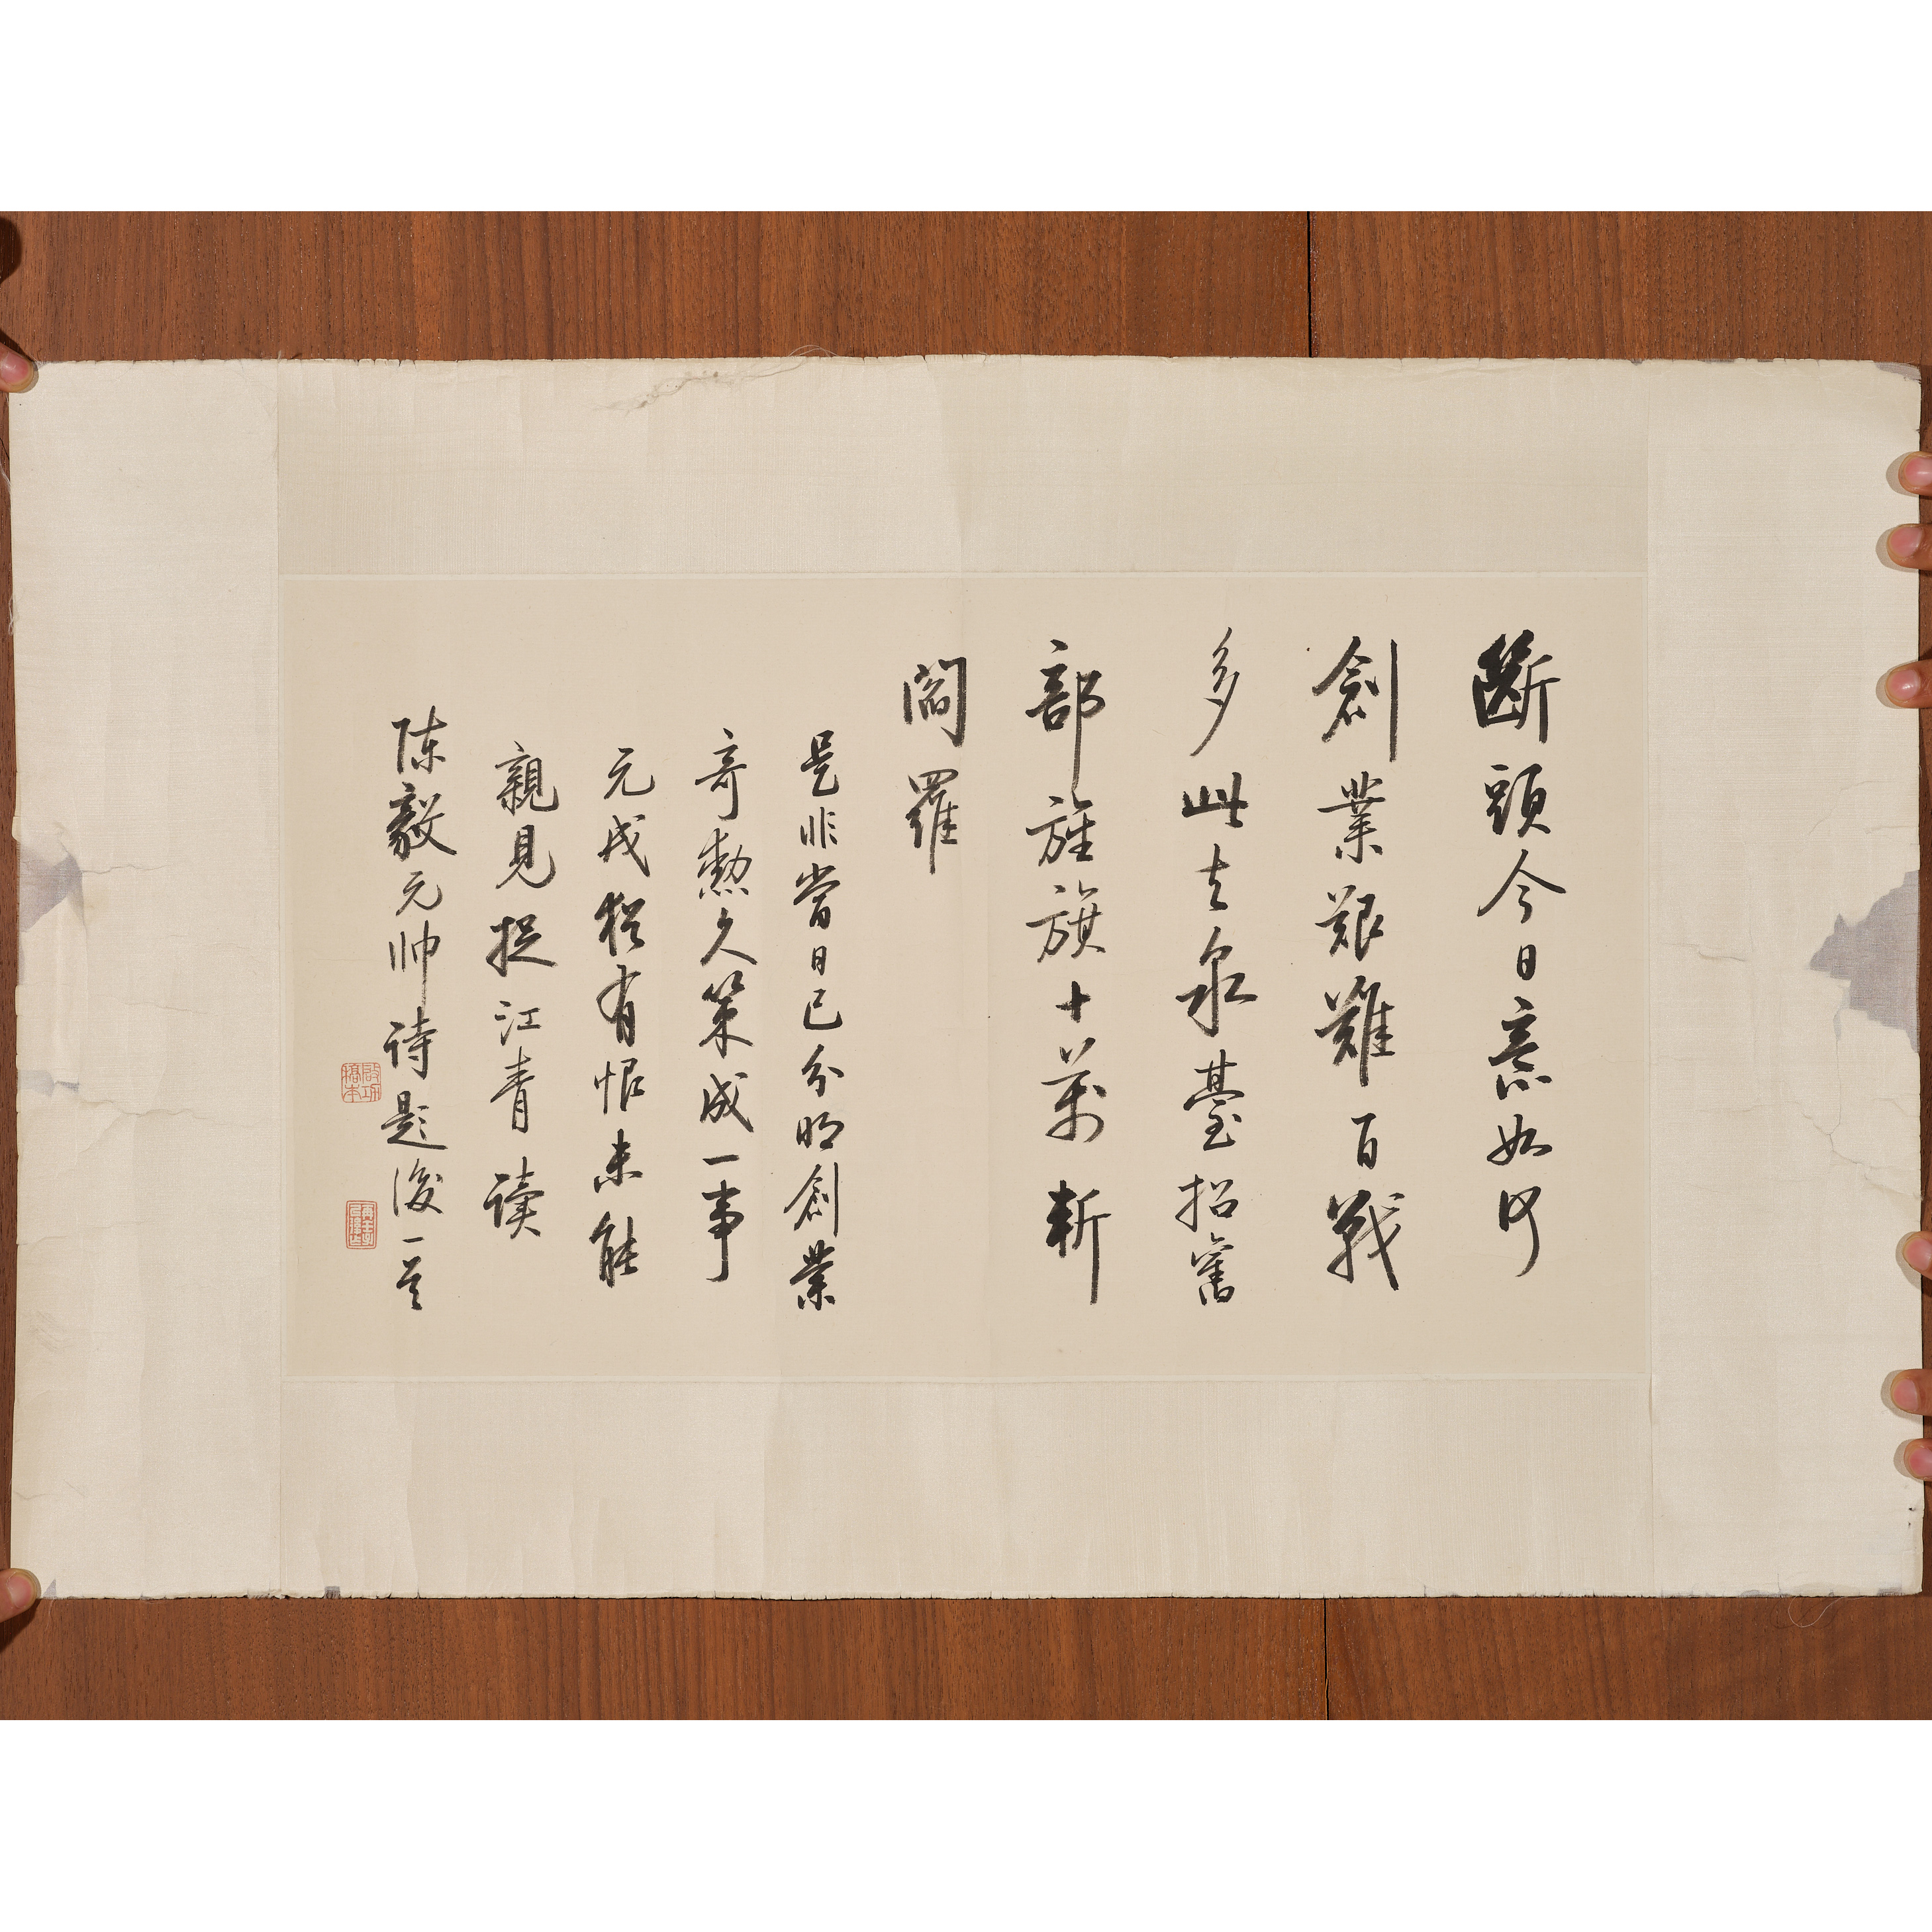 斷頭今日意如何
創業艱難百戰
多此去泉臺招舊
部旌旗十萬斬
閻羅
是非當日已分明創業
奇勳久策成一事
元戎猶有恨未能
親見捉江青读
陈毅元帅诗题後一首